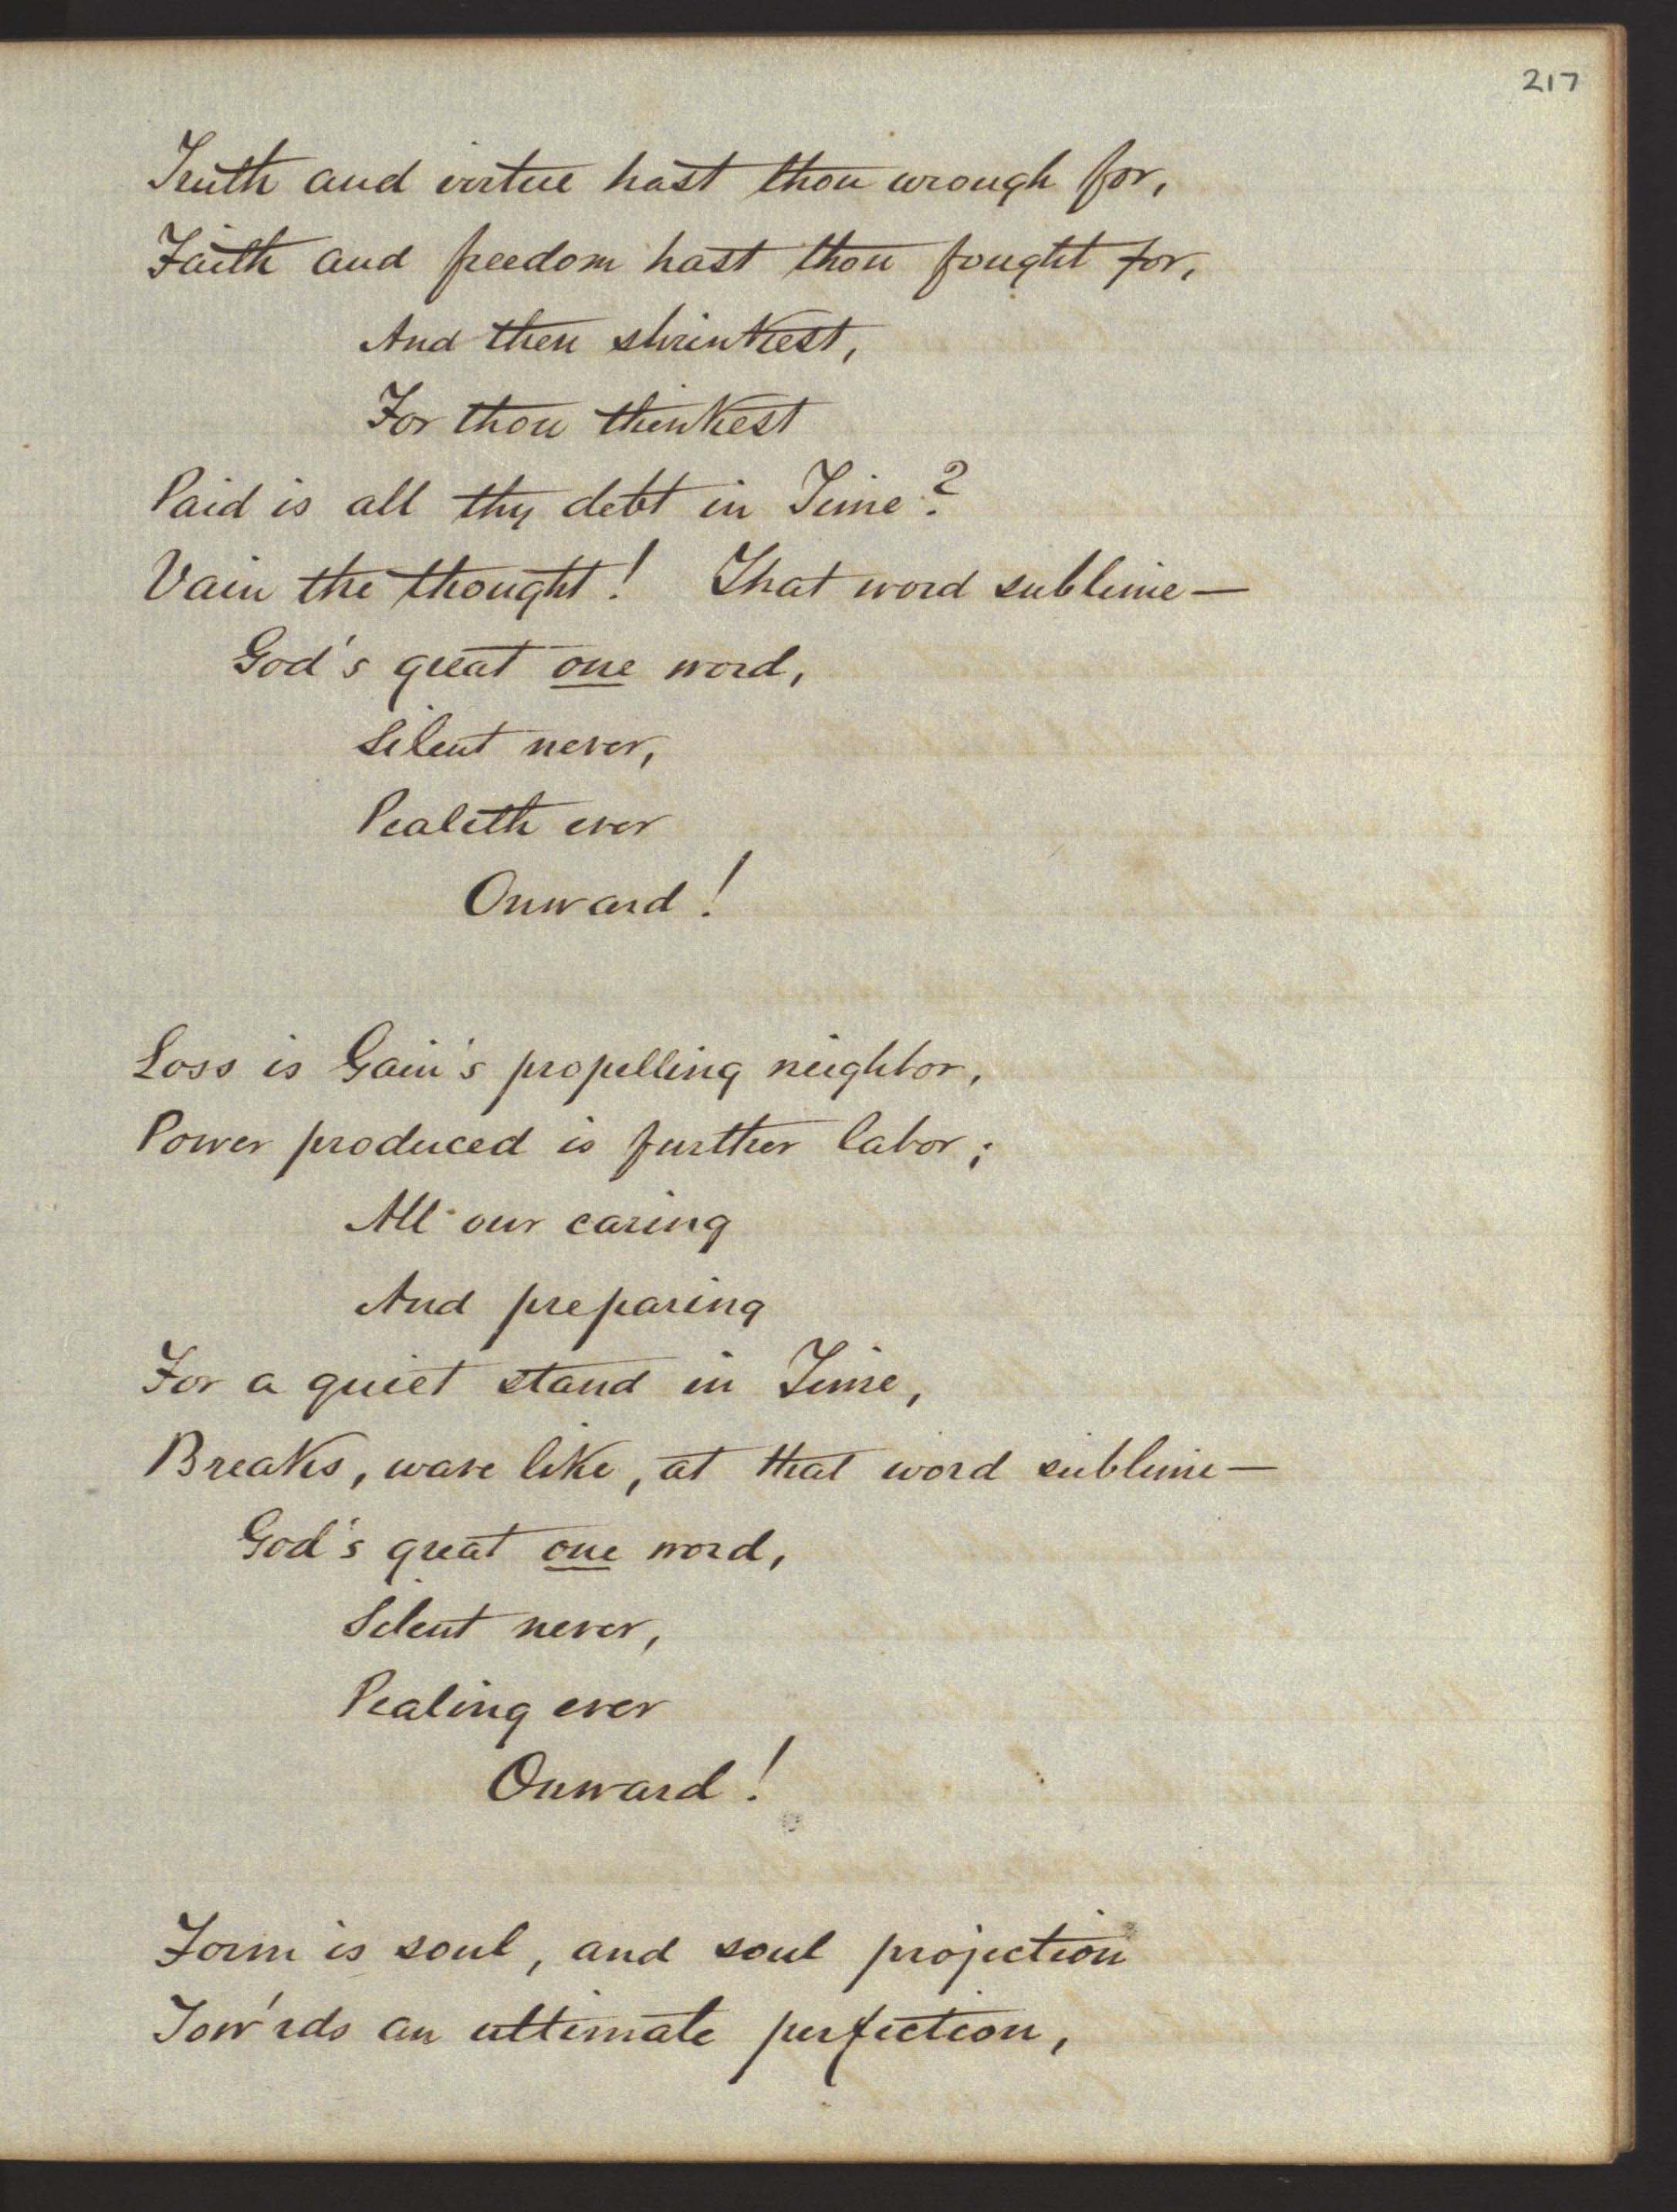 217
Truth and virtue hast thou wrough for,
Faith and freedom hast thou fought for,
And then shrinkest,
For thou thinkest
Paid is all thy debt in Time?
Vain the thought! That word sublime—
God's great one word,
Silent never,
Pealeth ever
Onward!
Loss is Gain's propelling neighbor,
Power produced is further labor;
All our caring
And preparing
For a quiet stand in Time,
Breaks, wave like, at that word sublime—
God's great one word,
Silent never,
Pealing ever
Onward!
Form is soul, and soul projection
Tow'rds an ultimate perfection,